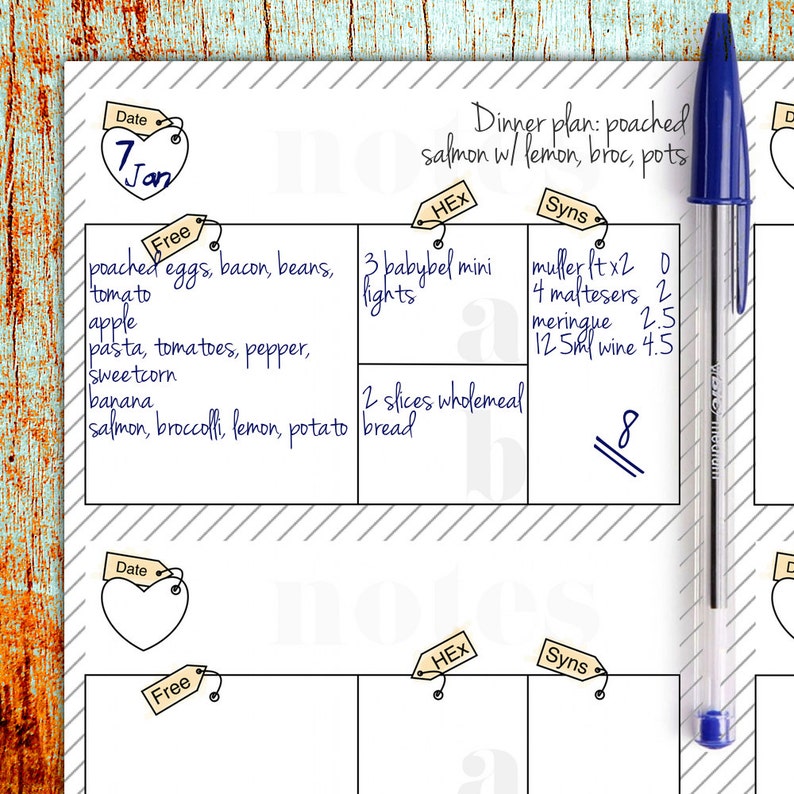 Date
notes
Dinner plan: poached
salmon w/ lemon, broc, pots
7
Jan
Free
HEx
Syns
poached eggs, bacon, beans,
tomato
apple
pasta, tomatoes, pepper,
sweetcorn
banana
salmon, broccolli, lemon, potato
a
3 babybel mini
lights
b
2 slices wholemeal
bread
muller lt x2 0
4 maltesers 2
meringue 2.5
125ml wine 4.5
8
medium
D
Date
notes
Free
HEx
Syns
a
D